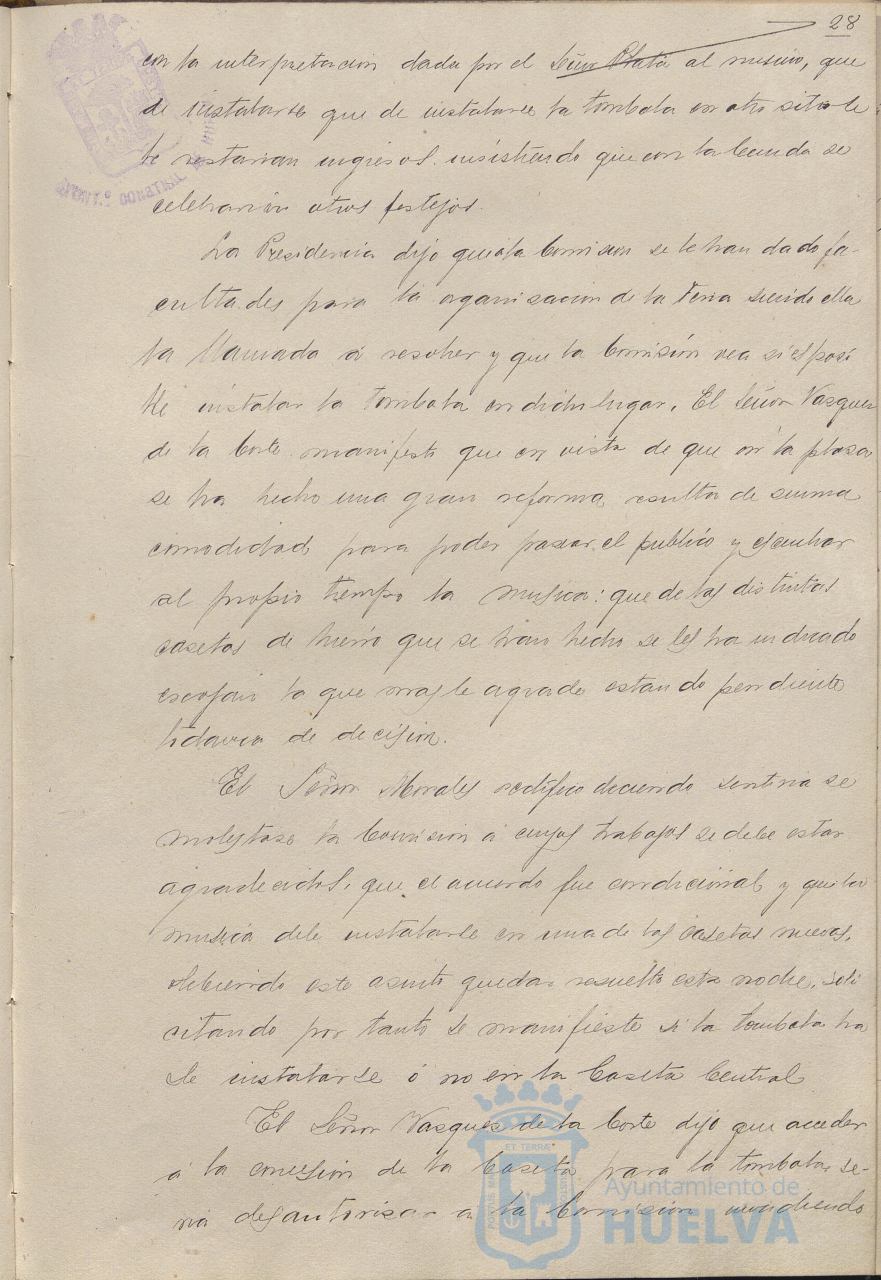 28
con la interpretacion dada por el Señor Plata al mismo, que
de instalarse que de instalarse la tombola en otro sitio le
le restarian ingresos insistiendo que con la banda se
celebrarian otros festejos.
La Presidencia dijo que á la Comision se le han dado fa-
cultades para la organisacion de la Feria siendo ella
la llamada á resolver y que la Comisión vea si es posi
ble instalar la tombola en dicho lugar. El Señor Vasquez
de la Corte manifestó que en vista de que en la plaza
se ha hecho una gran reforma, resulta de suma
comodidad para poder pasear el publico y escuchar
al propio tiempo la musica: que de las distintas
casetas de hierro que se han hecho se les ha indicado
escojan la que mas le agrade estando pendiente
todavia de decision.
El Señor Morales rectificó diciendo sentiria se
molestase la Comision á cuyos trabajos se debe estar
agradecidos, que el acuerdo fue condicional y que la
musica debe instalarse en una de las casetas nuevas,
debiendo este asunto quedar resuelto esta noche, soli
citando por tanto se manifieste si la tombola ha
de instalarse ó no en la Caseta Central
El Señor Vasquez de la Corte dijo que acceder
á la concesion de la Caseta para la tombola, se-
ria desautorisar a la Comision
Ayuntamiento de
HUELVA